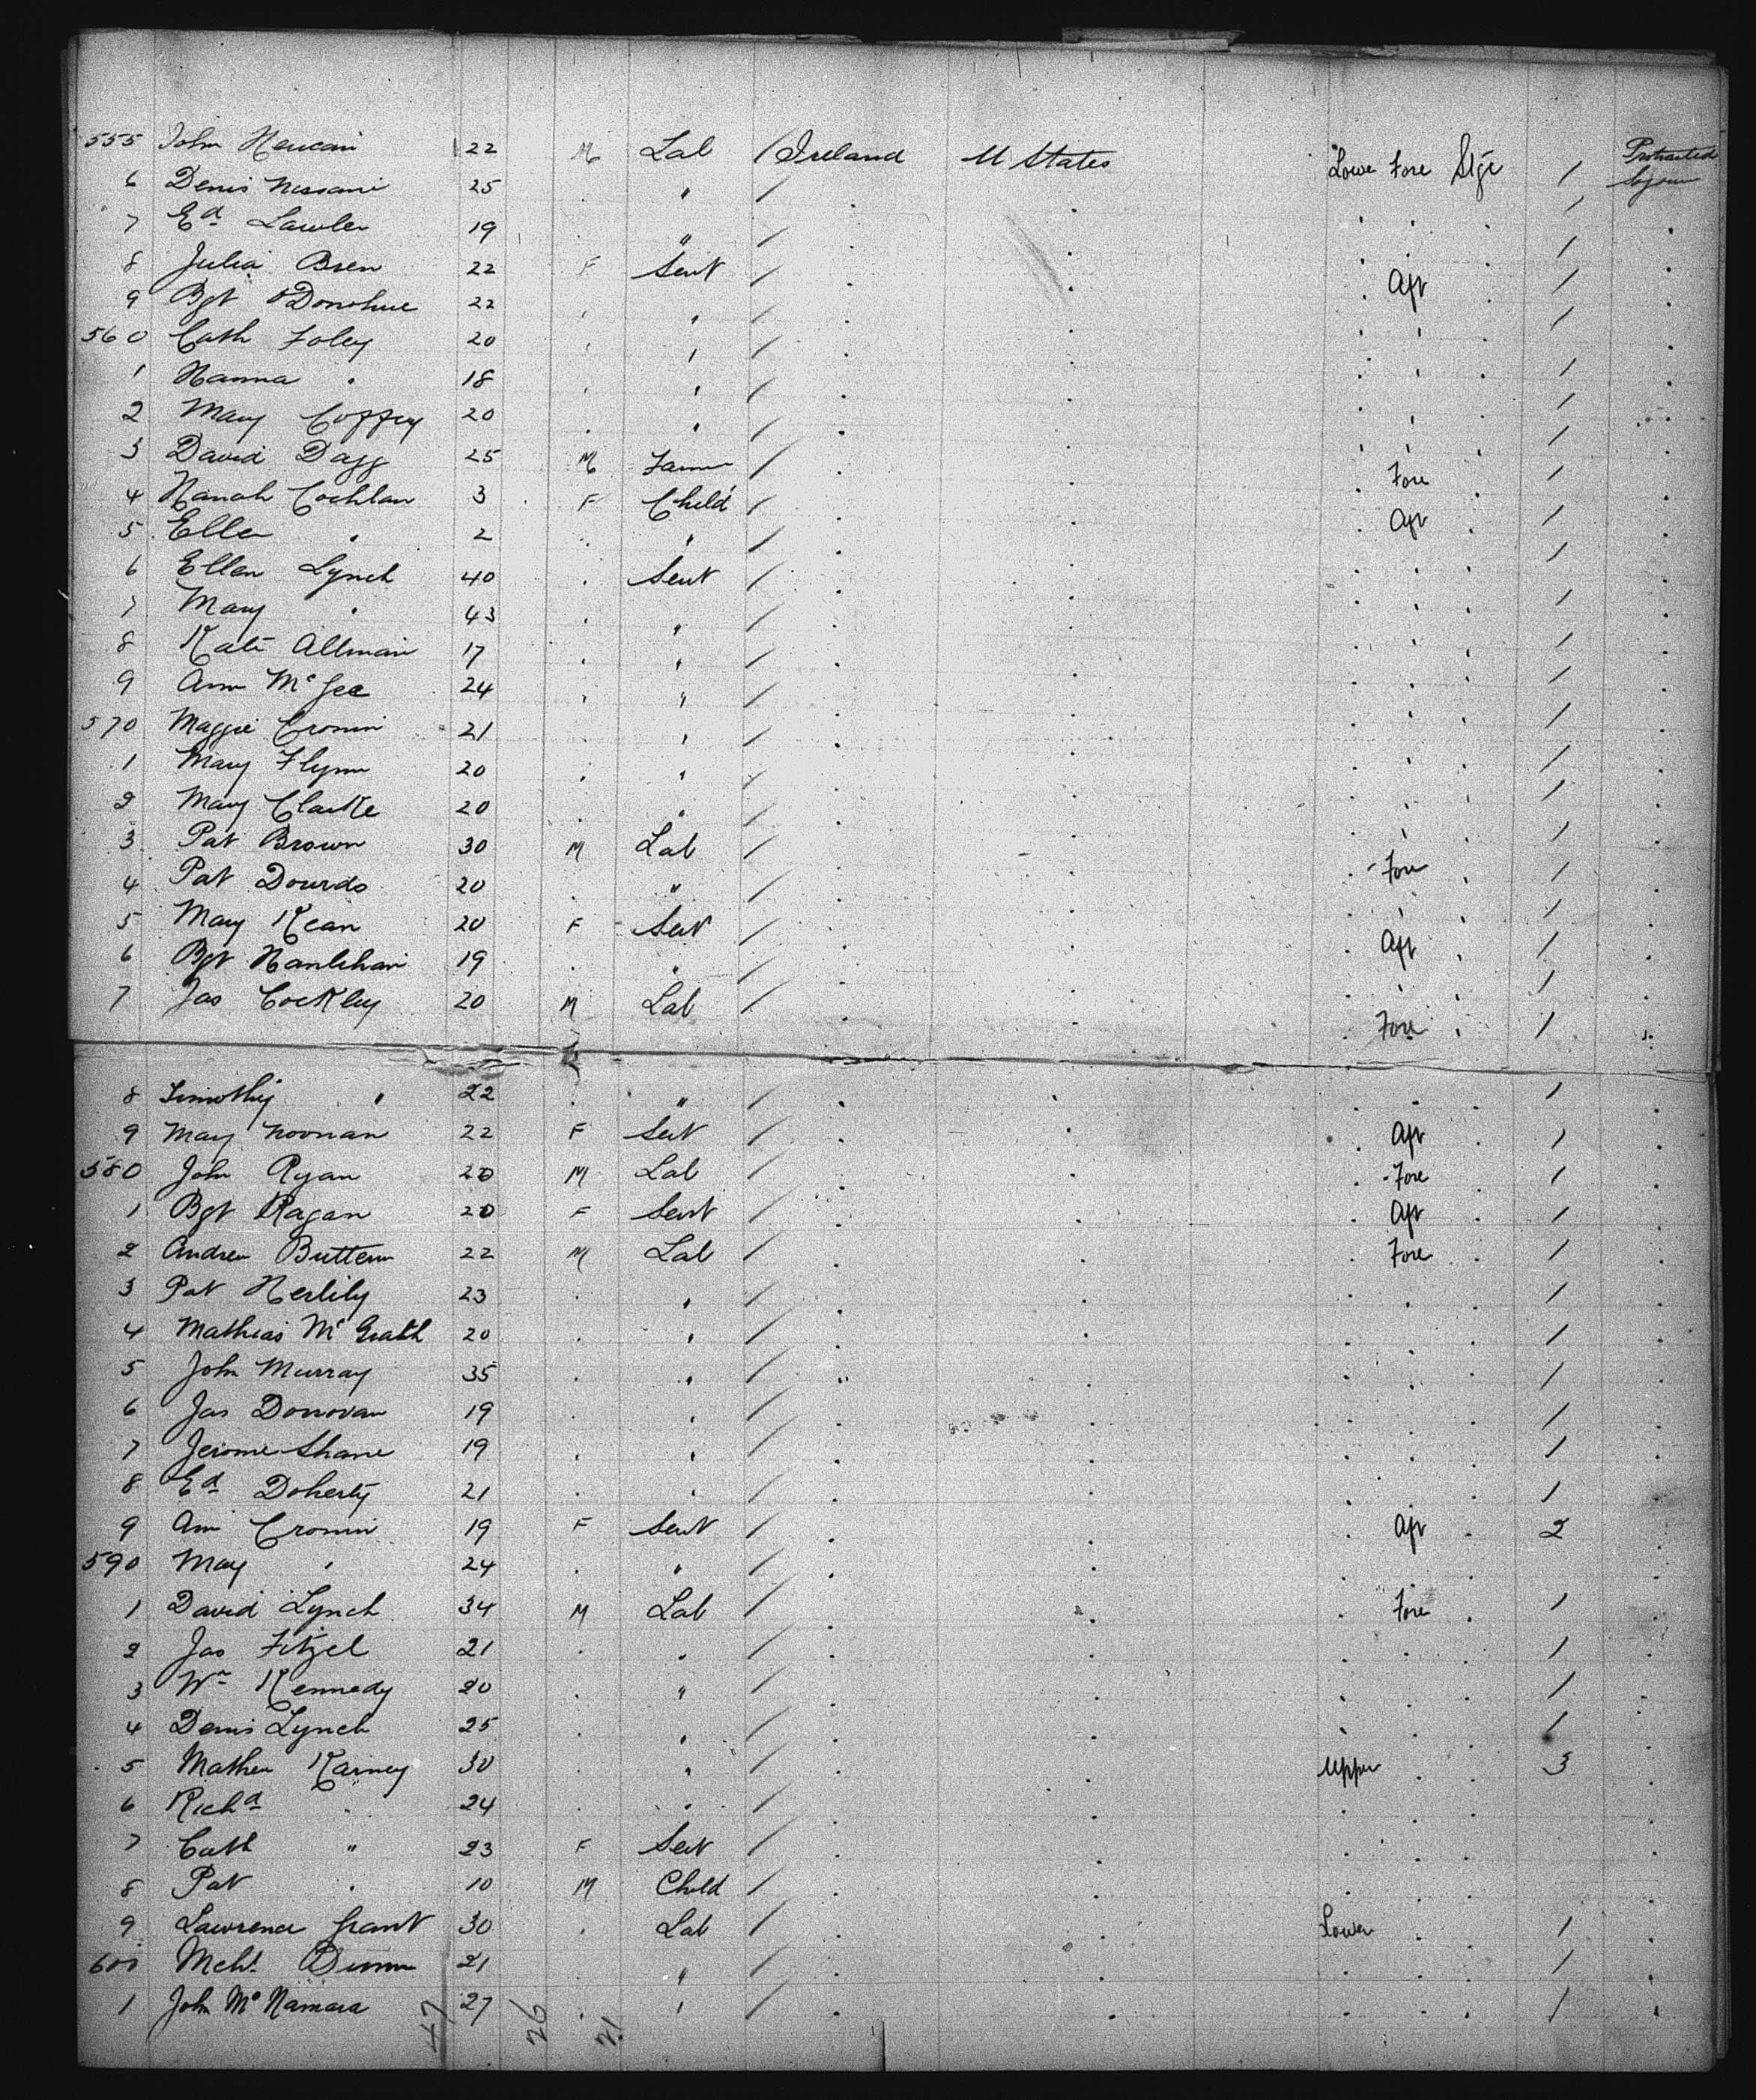 555 John 22 M Lab / Ireland U States Lower Fore Stge 1 Protracted Sojourn
6 Denis 25 " / 1
7 Ed Lawler 19 " / 1
8 Julia Bren 22 F Servt / Aft 1
9 Bgt O'Donohue 22 " / 1
560 Cath Foley 20 " / 1
1 Hanna " 18 " / 1
2 Mary Coffey 20 " / 1
3 David Dagg 25 M Farmer / Fore 1
4 Hanah Cochlan 3 F Child / Aft 1
5 Ellen " 2 " / 1
6 Ellen Lynch 40 Servt / 1
7 Mary " 43 " / 1
8 Kate Allman 17 " / 1
9 Ann McGee 24 " / 1
570 Maggie Cronin 21 " / 1
1 Mary Flynn 20 " / 1
2 Mary Clarke 20 " / 1
3 Pat Brown 30 M Lab / Fore 1
4 Pat Dourds 20 " / 1
5 Mary Kean 20 F Servt / Aft 1
6 Bgt Hanlihan 19 " / 1
7 Jas Cockley 20 M Lab / Fore 1
8 Timothy " 22 " / 1
9 Mary Noonan 22 F Servt / Aft 1
580 John Ryan 20 M Lab / Fore 1
1 Bgt Ragan 20 F Servt / Aft 1
2 Andrew 22 M Lab / Fore 1
3 Pat Herlihy 23 " / 1
4 Mathias McGrath 20 " / 1
5 John Murray 35 " / " 1
6 Jas Donovan 19 " / 1
7 Jerome Shane 19 " / 1
8 Ed Doherty 21 " / 1
9 Ann Cronin 19 F Servt / Aft 2
590 Mary " 24 " /
1 David Lynch 34 M Lab / Fore 1
2 Jas Fitzel 21 " / 1
3 Wm Kennedy 20 " / 1
4 Denis Lynch 25 " / 1
5 Mathew Karney 30 " / Upper 3
6 Richd " 24 " /
7 Cath " 23 F Servt /
8 Pat " 10 M Child /
9 Lawrence Grant 30 Lab / Lower 1
600 Mchl 21 " / 1
1 John McNamara 27 " / 1
47 26 21